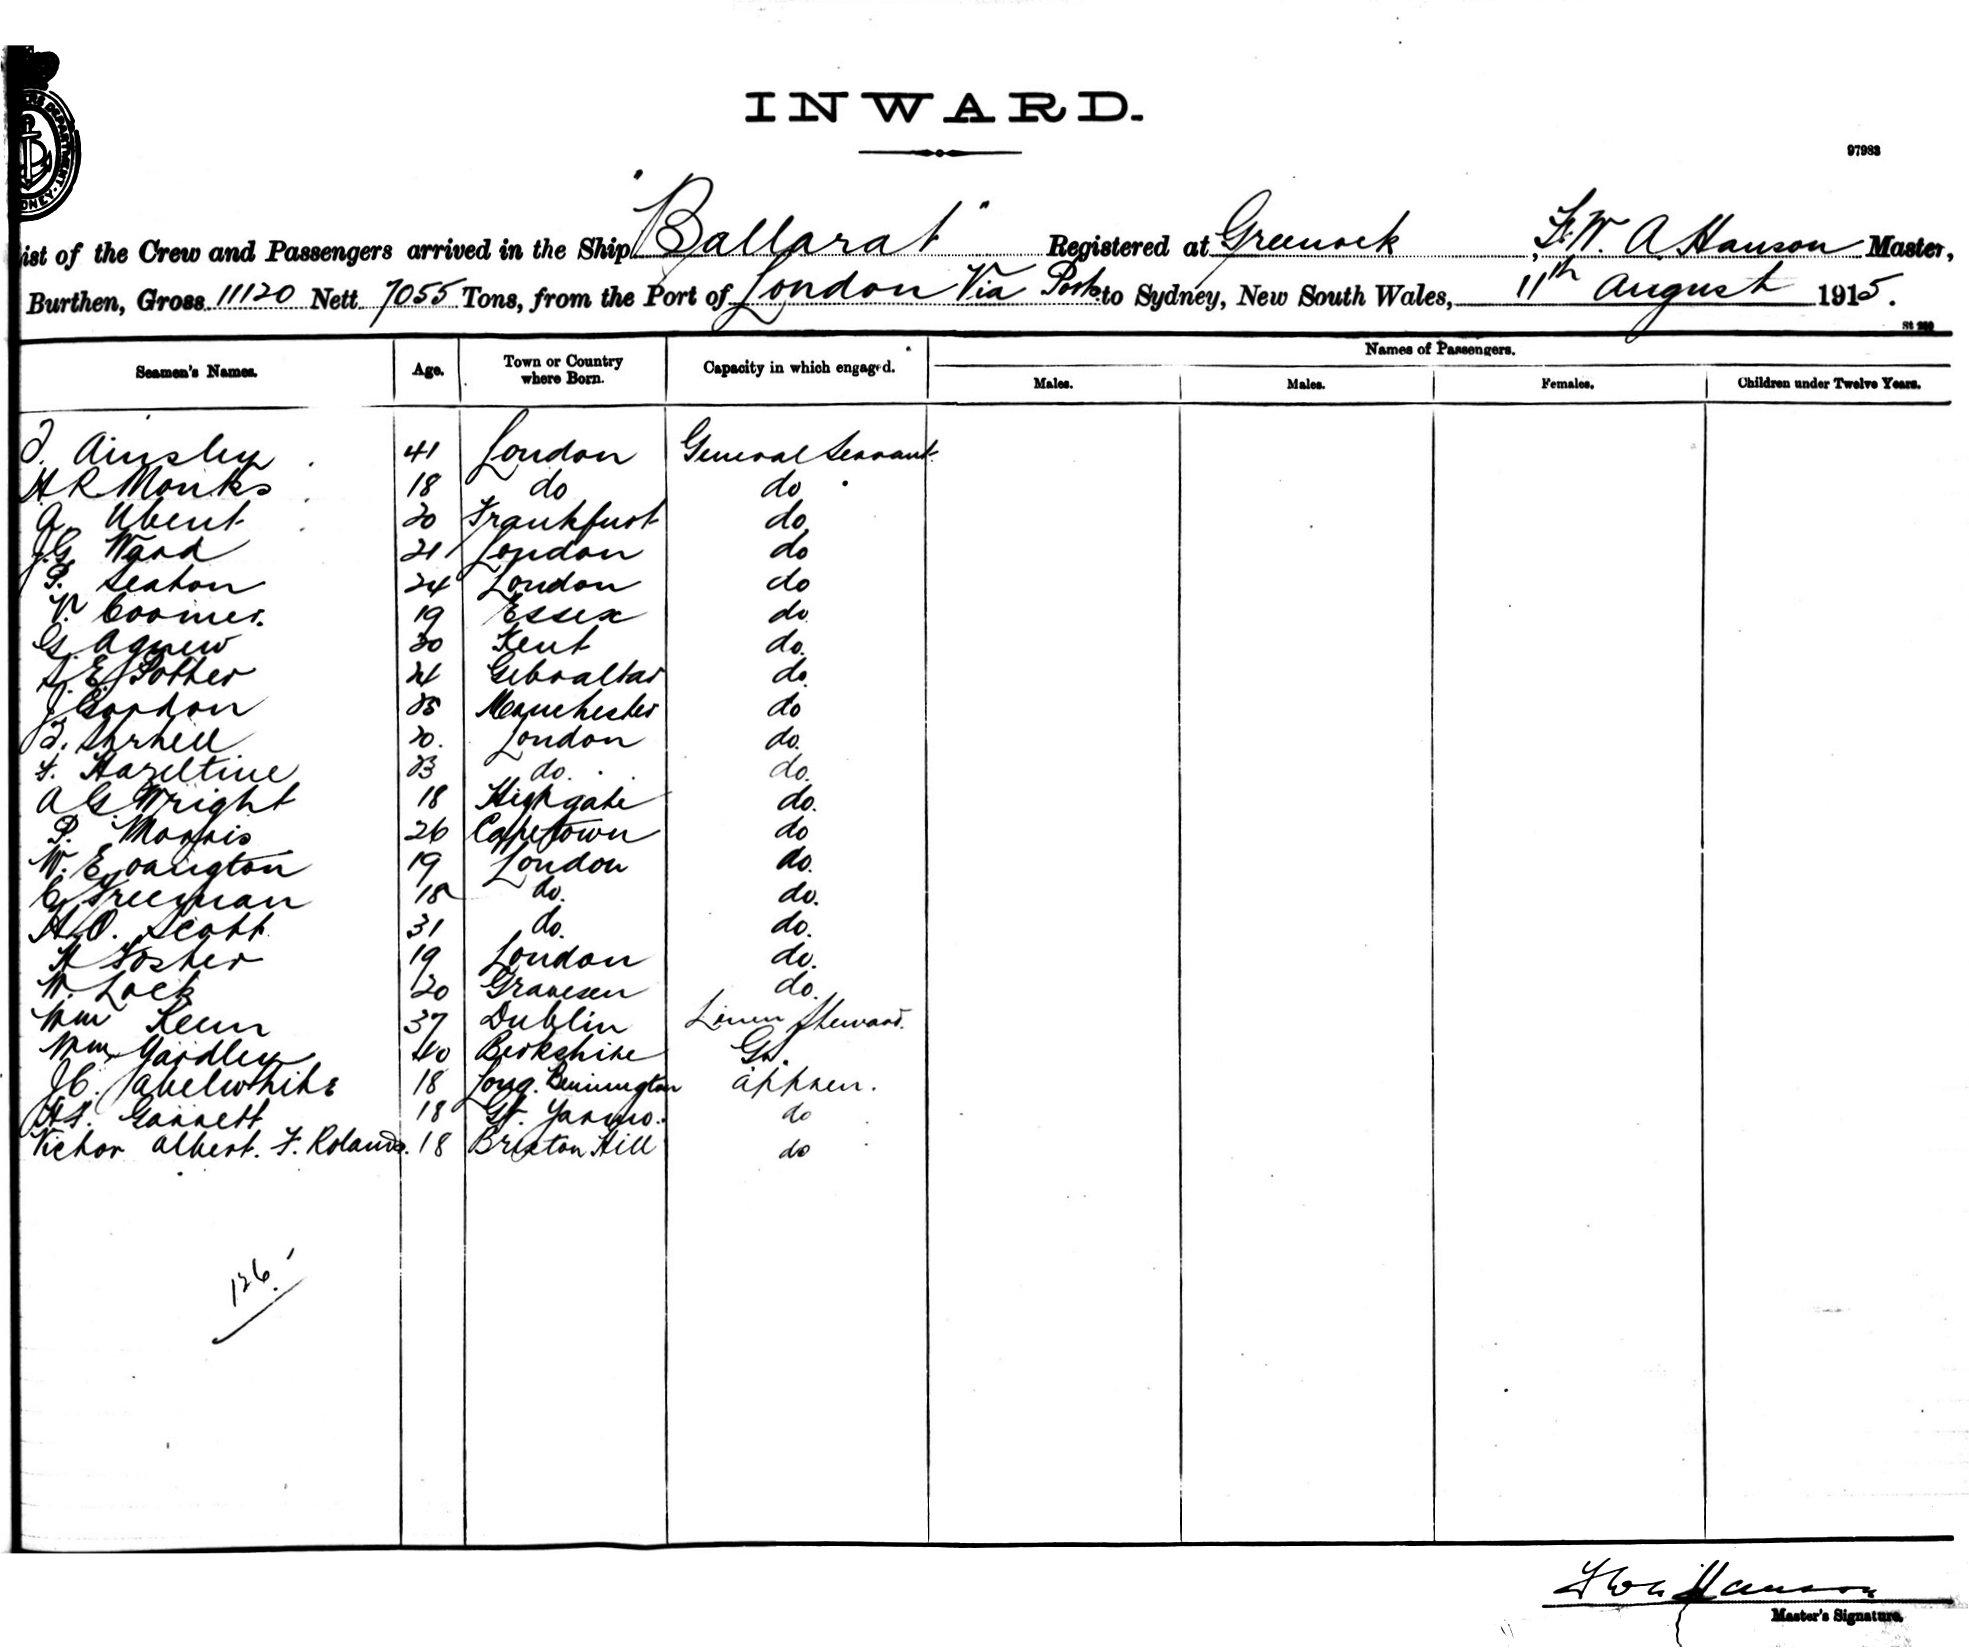 INWARD.
97983
ist of the Crew and Passengers arrived in the Ship "Ballarat" Registered at Greenock, F. W. A. Hanson Master,
Burthen, Gross 11120 Nett 7055 Tons, from the Port of London Via Ports to Sydney, New South Wales, 11th August 1915.
Seamen's Names. Age. Town or Country where Born. Capacity in which engaged. Names of Passengers.
Males. Males. Females. Children under Twelve Years.
Ainsley 41 London General Servant
H R Monks 18 do do
Ubent 20 Frankfurt do
J.G. Ward 21 London do
Seaton 24 London do
V. Coomer. 19 Essex do
G. Agnew 30 Kent do.
E. Potter 24 Gibraltar do.
J Gordon 25 Manchester do
20. London do.
F. Hazeltine 23 do. do.
A G Wright 18 Highgate do.
P. Morris 26 Capetown do
W. Evangton 19 London do.
C Freeman 18 do. do.
H. O. Scott 31 do. do.
H Foster 19 London do.
W. Lock 20 Gravesen do.
Wm Keen 37 Dublin Linen Steward.
Wm Yardley 40 Berkshire Gr.
J C. Abelwhite 18 Long. Bennington appren.
Garrett 18 Gt. Yarmo. do
Victor Albert. F. Rolands. 18 Brixton Hill do
126
F W A Hanson
Master's Signature.